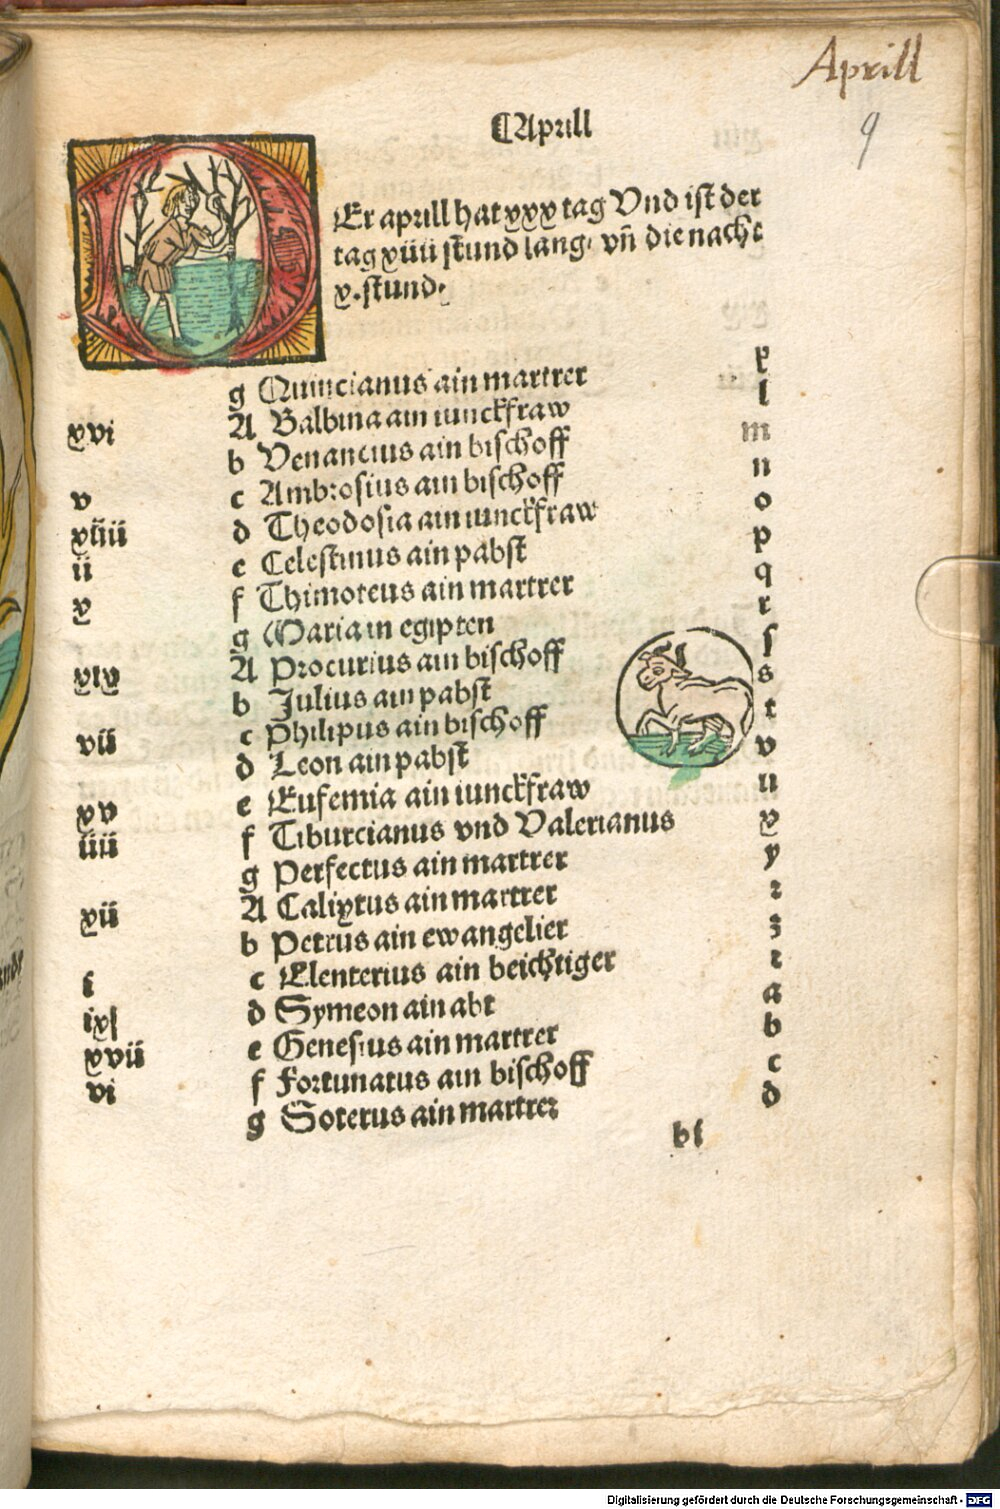 Aprill
9
⸿Aprill
DEr aprill hat xxx tag Vnd ist der
tag xiiii stund lang· vñ die nacht
x·stund·
g Quincianus ain martrer k
xvi A Balbina ain iunckfraw l
b Venancius ain bischoff m
v c Ambrosius ain bischoff n
xiii d Theodosia ain iunckfraw o
ii e Celestinus ain pabst p
x f Thimoteus ain martrer q
g Maria in egipten r
xix A Procurius ain bischoff ſ
b Julius ain pabst s
vii c Philipus ain bischoff t
d Leon ain pabst v
xv e Eufemia ain iunckfraw u
iiii f Tiburcianus vnd Valerianus x
g Perfectus ain martrer y
xii A Calixtus ain martrer z
b Petrus ain ewangelier
i c Elenterius ain beichtiger
d Symeon ain abt a
ix e Genesius ain martrer b
xvii f Fortunatus ain bischoff c
vi g Soterus ain martrer d
bi
Digitalisierung gefördert durch die Deutsche Forschungsgemeinschaft - DFG